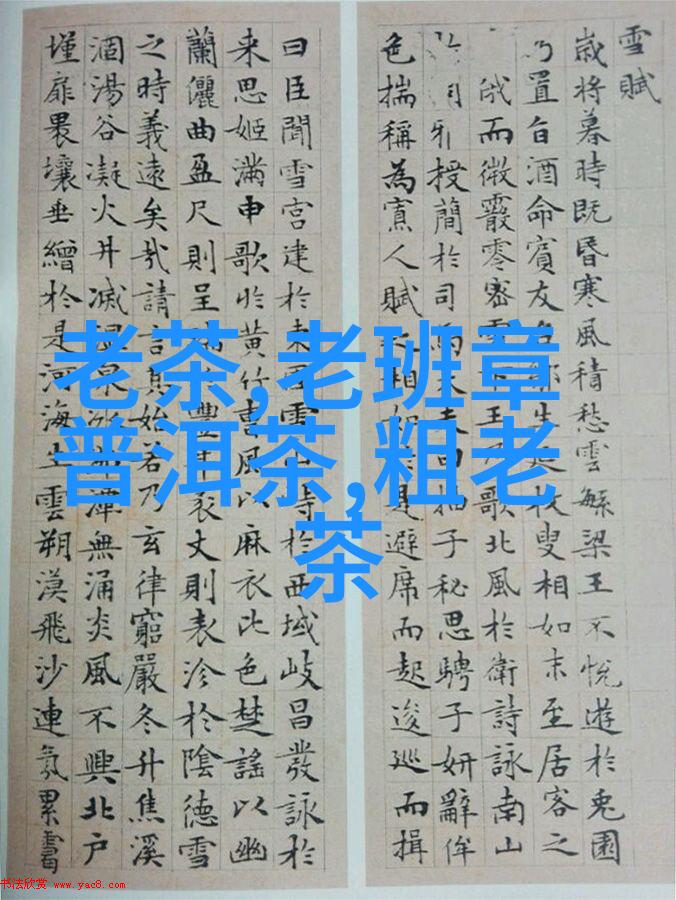 老茶,老班章
普洱茶,粗老
茶
雪賦
歳将暮時既昏寒風積愁雲繁梁王不悅遊於兎園
乃置旨酒命賓友召鄒生延枚叟相如末至居客之
俄而微霰零密雪下王乃歌北風於衛詩詠南山
授簡於司馬大夫曰抽子秘思騁子妍辭侔
色揣稱為寡人賦之相如於是避席而起逡巡而揖
曰臣聞雪宮建於東西雪山峙於西域岐昌發詠於
来思姬滿申歌於黄竹曹風以麻衣比色楚謠以幽
蘭儷曲盈尺則呈瑞於豐年袤丈則表沴於陰德雪
之時義遠矣哉請言其始若乃玄律窮嚴冬升焦溪
涸湯谷凝火井滅温泉冰沸潭無涌炎風不興北戶
墐扉裸壤垂繒於是河海生雲朔漠飛沙連氛累靄
书法欣赏 www.yac8.com